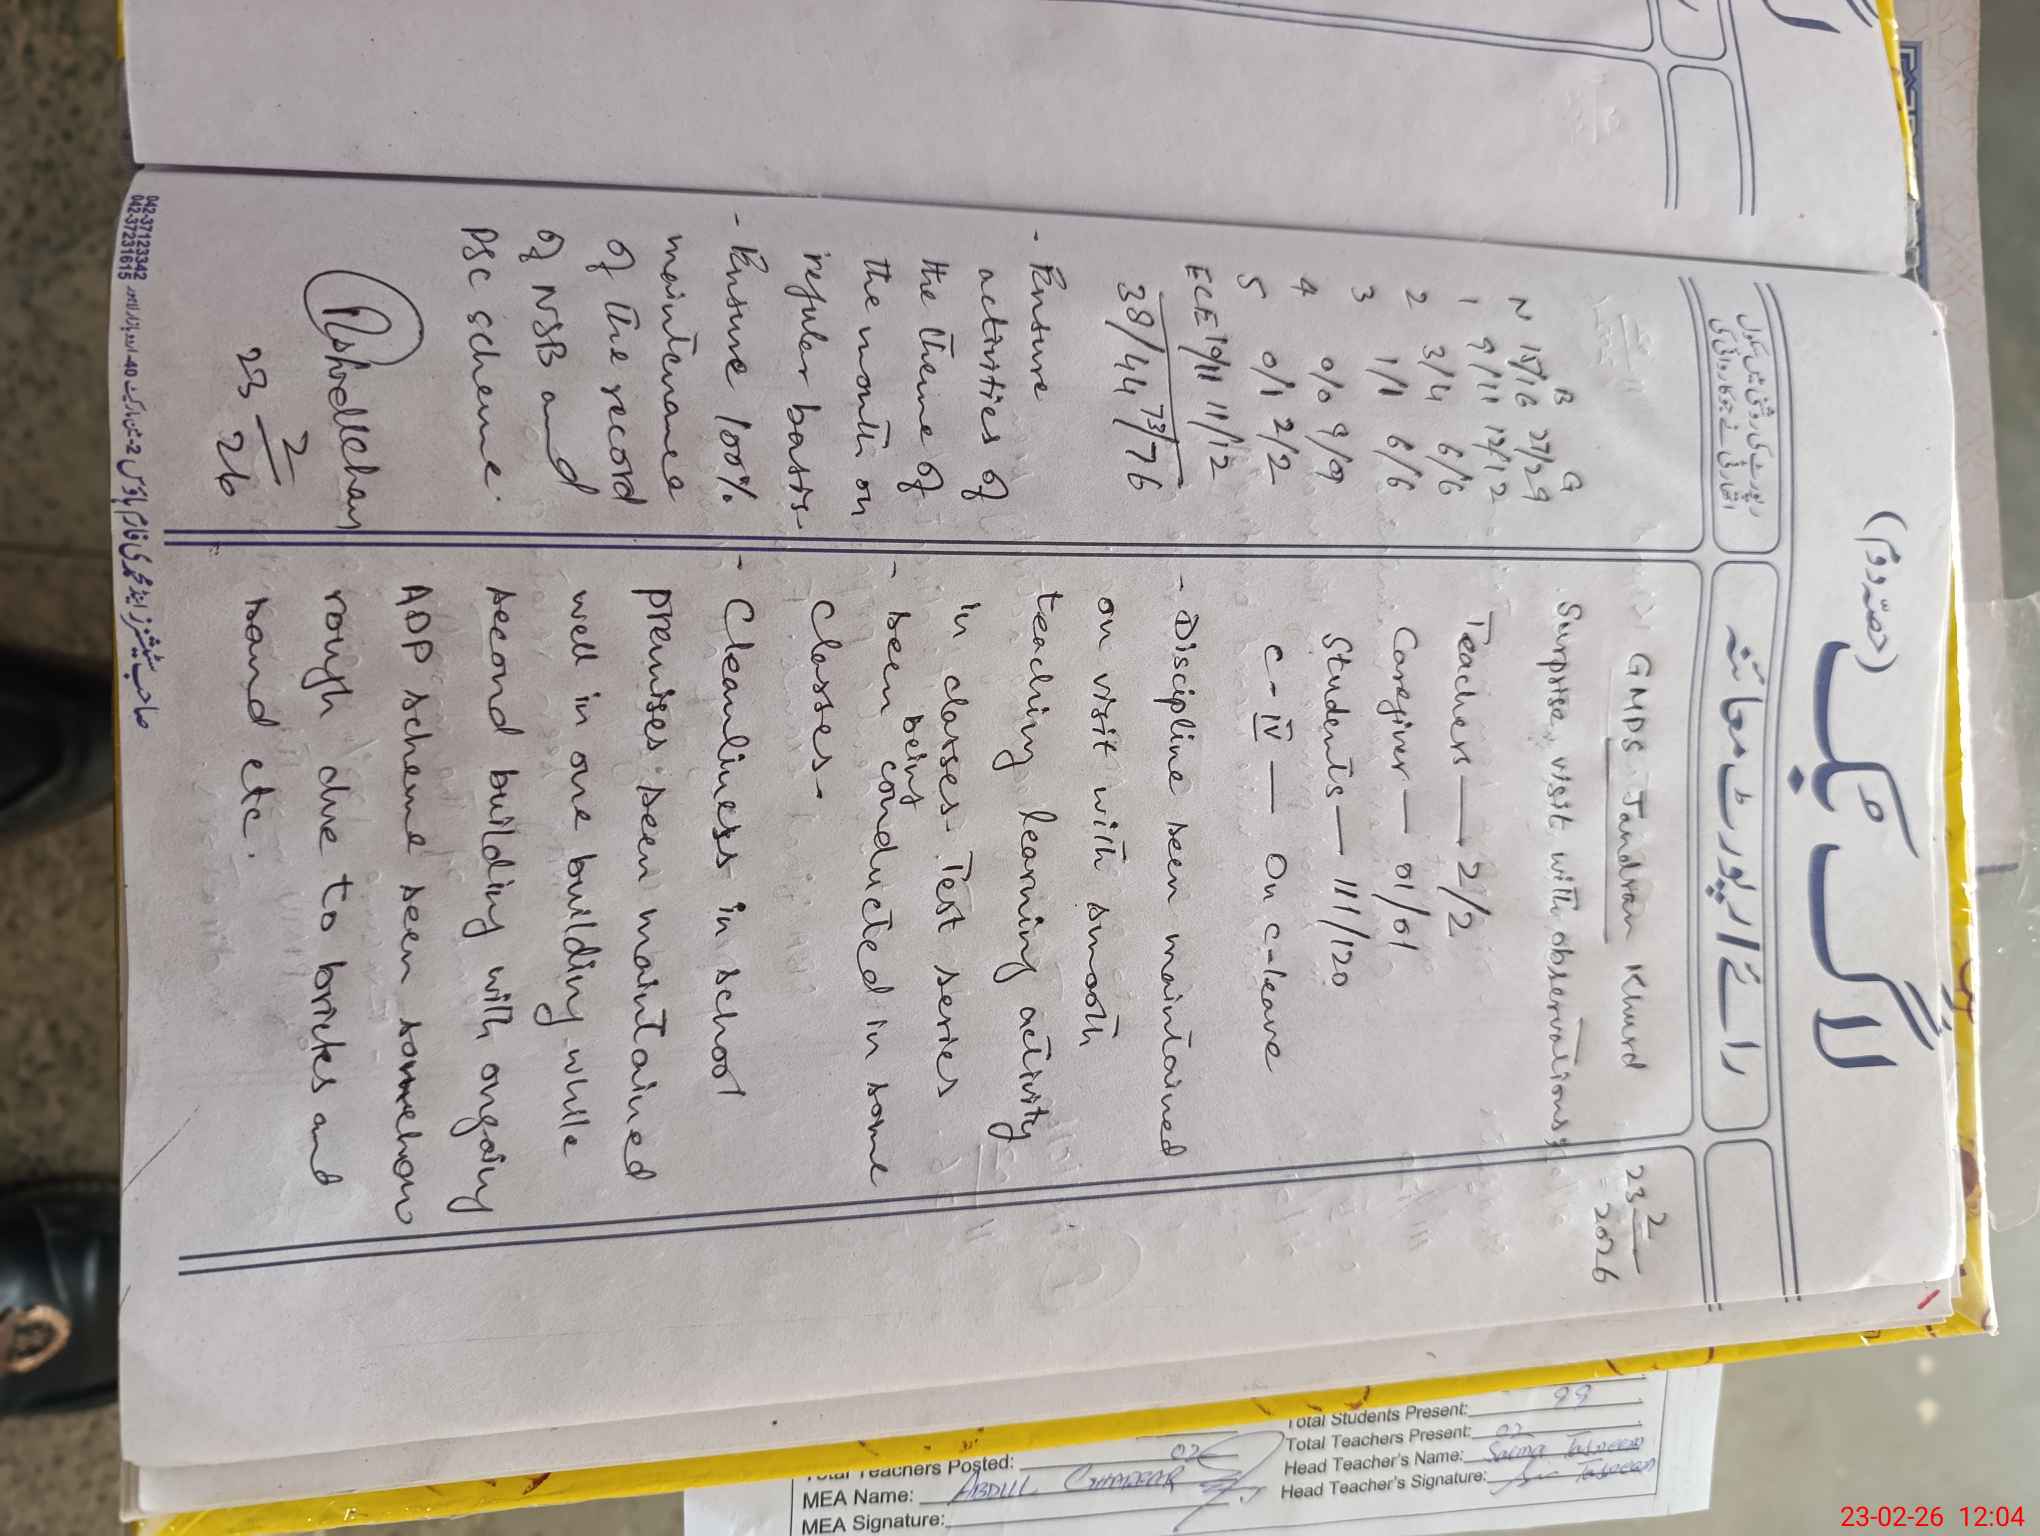 لاگ بک
(حصّہ دوم)
رائے / رپورٹ معائنہ
رپورٹ کی روشنی میں سکول
انتظامیہ نے جو کارروائی کی
GMPS Jandran Khurd
23 2/2026
Surprise visit with observations:
Teachers — 2/2
Caregiver — 01/01
Students — 111/120
C-IV — On c-leave
- Discipline seen maintained
on visit with smooth
teaching learning activity
in classes. Test series
- seen being conducted in some
classes.
- Cleanliness in school
premises seen maintained
well in one building while
second building with ongoing
ADP scheme seen somehow
rough due to bricks and
sand etc.
B G
N 15/16 27/29
1 9/11 12/12
2 3/4 6/6
3 1/1 6/6
4 0/0 9/9
5 0/1 2/2
ECE 10/11 11/12
38/44 73/76
- Ensure
activities of
the theme of
the month on
regular basis.
- Ensure 100%
maintenance
of the record
of NSB and
PSC scheme.
23 2/26
042-37123342
042-37231615
Total Students Present: 99
Total Teachers Present: 02
Head Teacher's Name: Salma Tasneem
Head Teacher's Signature:
Total Teachers Posted: 02
MEA Name: ABDUL GHAFFAR
MEA Signature:
23-02-26 12:04